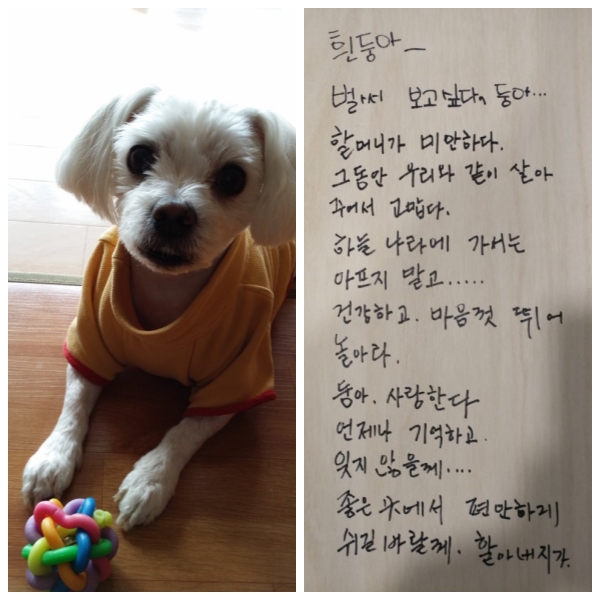 흰둥아_
벌써 보고싶다, 둥아...
할머니가 미안하다.
그동안 우리와 같이 살아
주어서 고맙다.
하늘 나라에 가서는
아프지 말고.....
건강하고. 마음껏 뛰어
놀아라.
둥아. 사랑한다
언제나 기억하고.
잊지 않을께....
좋은 곳에서 편안하게
쉬길 바랄께. 할아버지가.